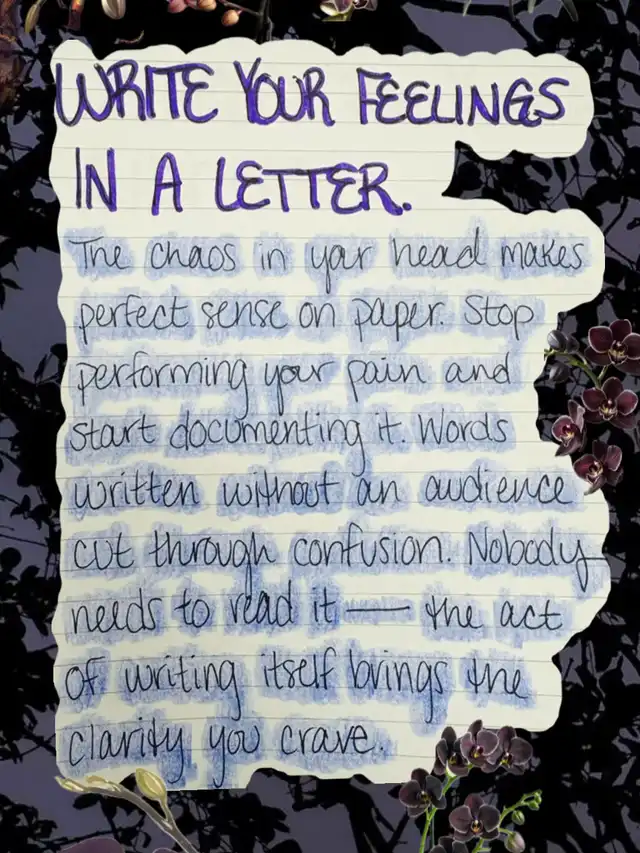 WRITE YOUR FEELINGS
IN A LETTER.
The chaos in your head makes
perfect sense on paper. Stop
performing your pain and
start documenting it. Words
written without an audience
cut through confusion. Nobody
needs to read it — the act
of writing itself brings the
clarity you crave.